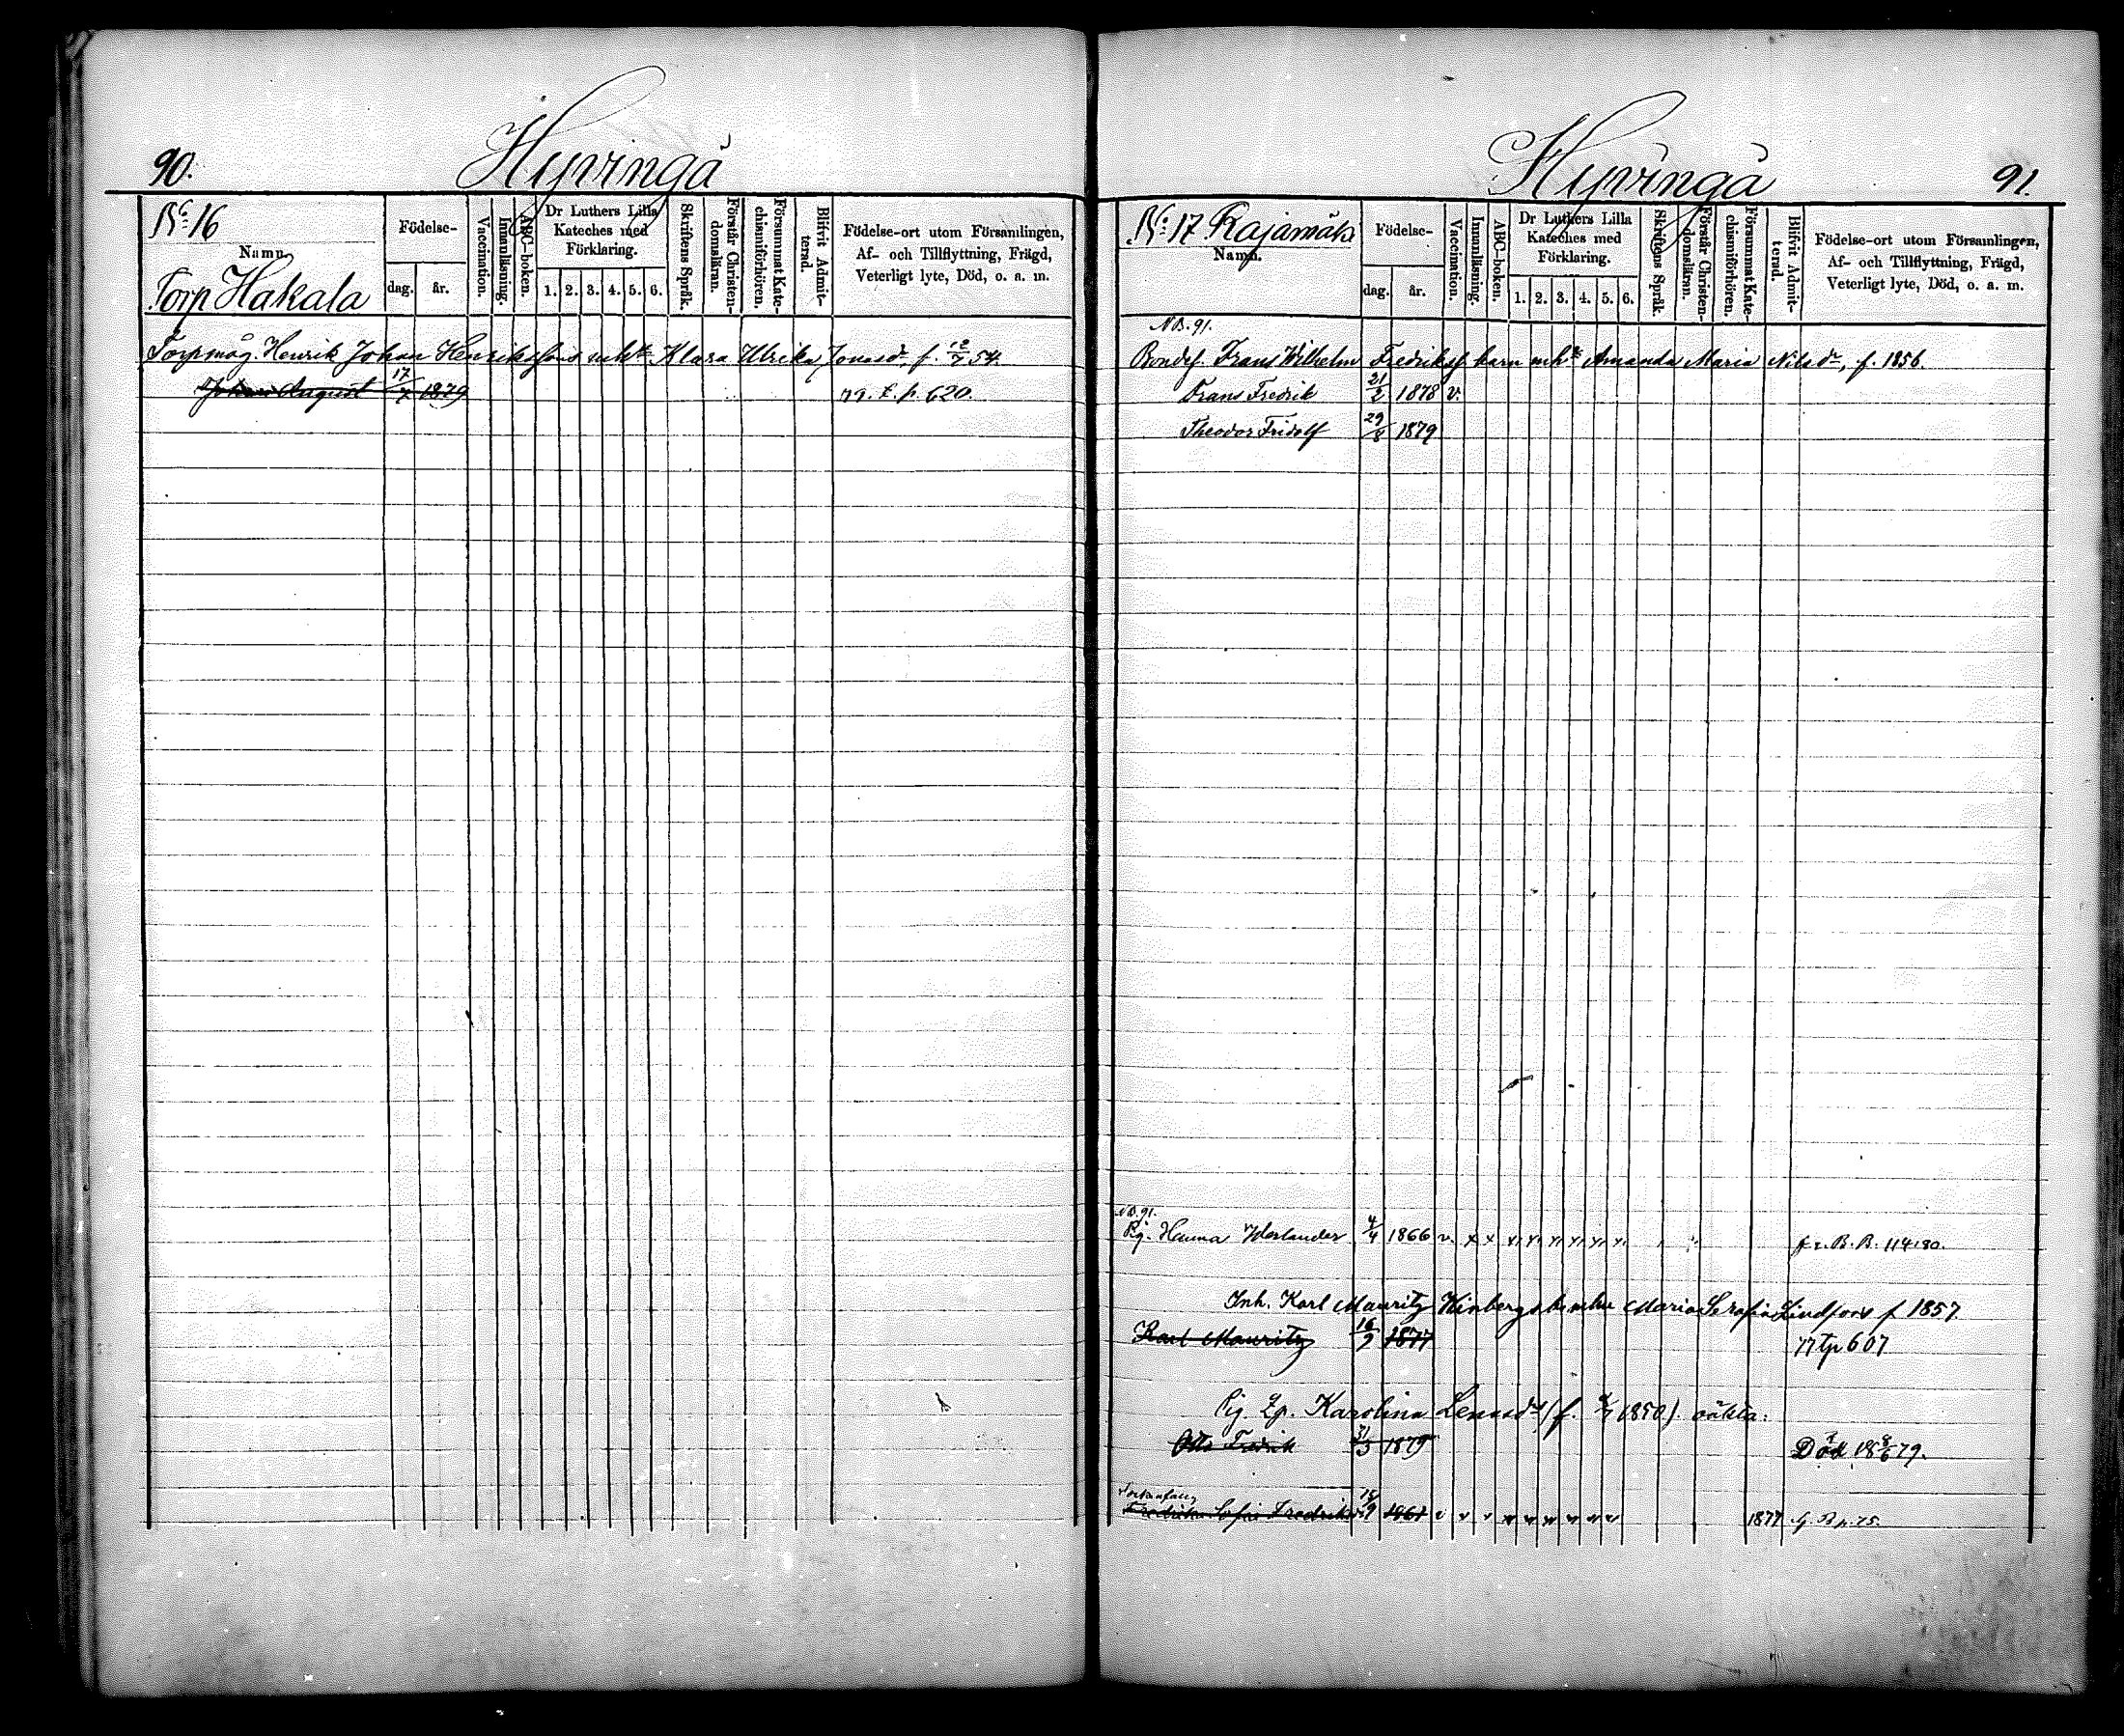 90.
Hyvingä
No 16
Namn.
Torp Hakala
Födelse-
dag.
år.
Vaccination.
Innanläsning.
ABC-boken.
Dr Luthers Lilla
Kateches med
Förklaring.
1. 2. 3. 4. 5. 6.
Skriftens Språk.
Förstår Christen-
domsläran.
Försummat Kate-
chismiförhören.
Blifvit Admit-
terad.
Födelse-ort utom Församlingen,
Af- och Tillflyttning, Frägd,
Veterligt lyte, Död, o. a. m.
Torpmåg. Henrik Johan Henrikssons mht Klara Ulrika Jonasdr f. 12/7 54.
Johan August 17/7 1879 n. t. p. 620.
Hyvingä
91.
No 17 Rajamäki
Namn.
Födelse-
dag.
år.
Vaccination.
Innanläsning.
ABC-boken.
Dr Luthers Lilla
Kateches med
Förklaring.
1. 2. 3. 4. 5. 6.
Skriftens Språk.
Förstår Christen-
domsläran.
Försummat Kate-
chismiförhören.
Blifvit Admit-
terad.
Födelse-ort utom Församlingen,
Af- och Tillflyttning, Frägd,
Veterligt lyte, Död, o. a. m.
NB. 91.
Bondes. Frans Wilhelm Fredrikss barn mht Amanda Maria Nilsdr, f. 1856.
Frans Fredrik 21/2 1878 v.
Theodor Fridolf 29/8 1879
NB. 91.
Pig. Hanna 4/4 1866 v. x x f. r. B. B. 114. 80.
Inh. Karl Mauritz Maria Serafia Lindfors f 1857
Karl Mauritz 16/9 1877 n tp 607
Pig. Karolina f. 1850). oäkta:
Otto Fredrik 31/3 1879 Död 18 8/6 79.
Fredrika Sofia Fredriksd 18/9 1861 v v v v v v v v v 1877 p. 75.